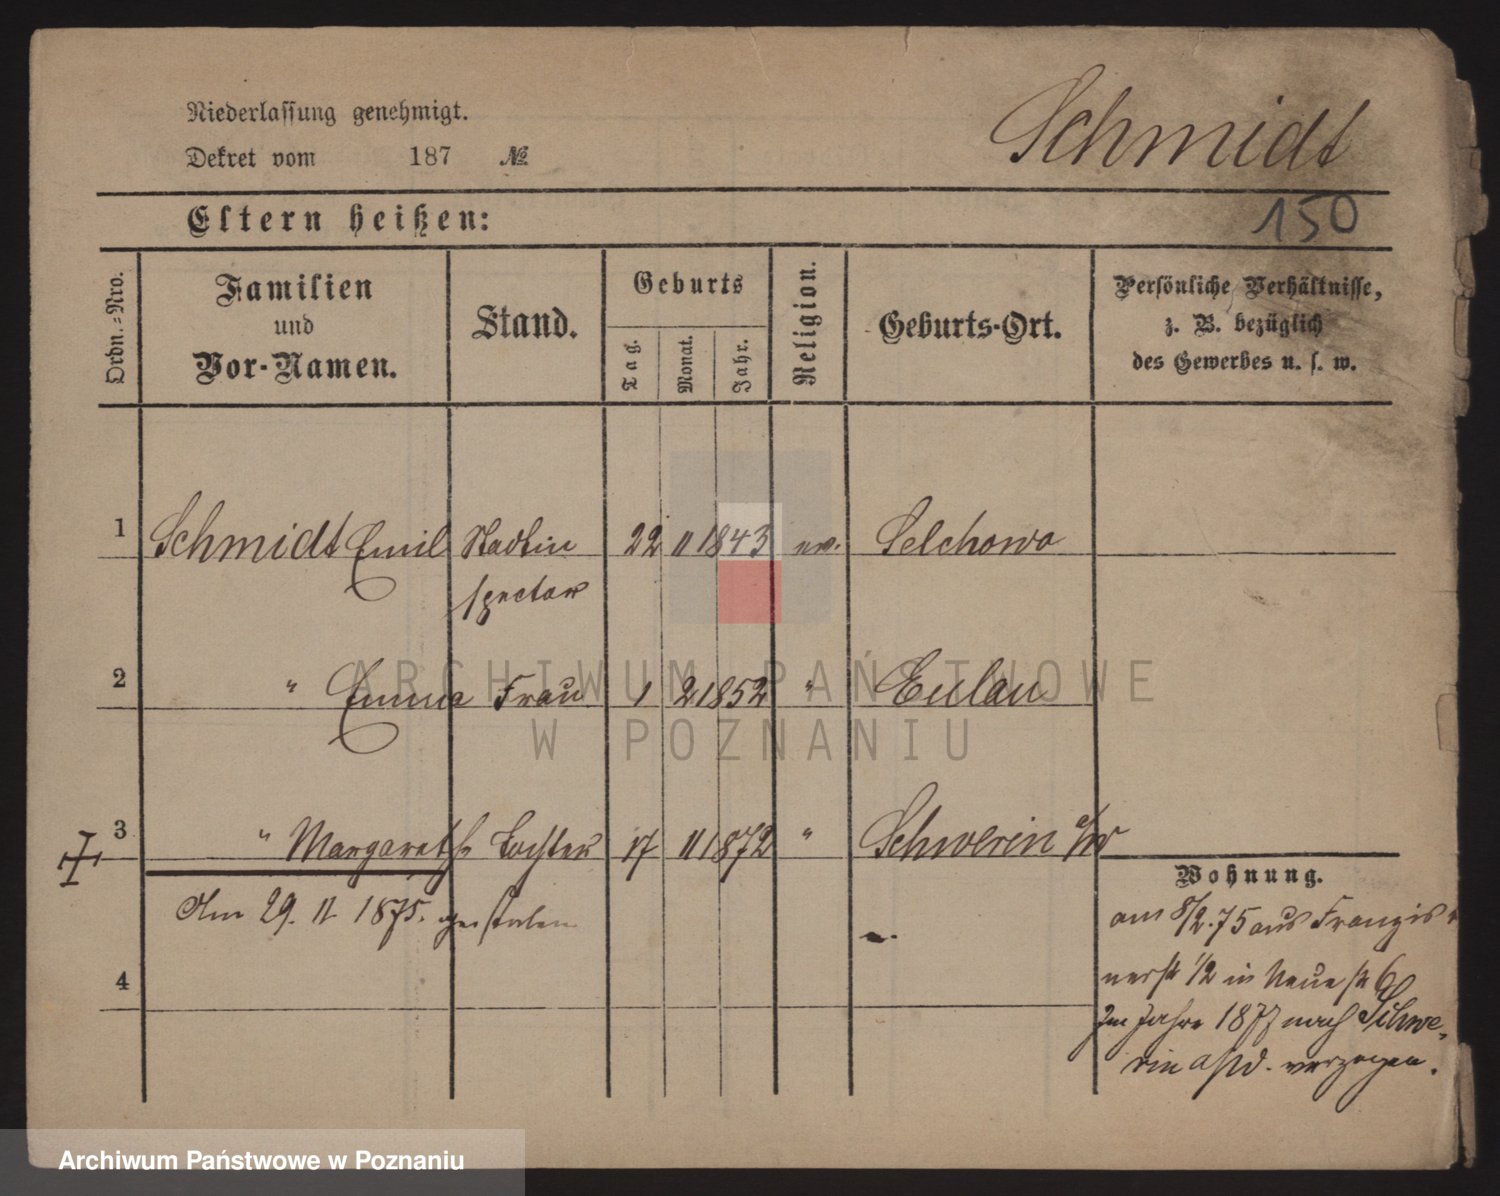 Niederlassung genehmigt.
Dekret vom 187 №
Schmidt
Eltern heißen:
150
Ordn.-Nro.
Familien
und
Vor-Namen.
Stand.
Geburts
Tag.
Monat.
Jahr.
Religion.
Geburts-Ort.
Persönliche Verhältnisse,
z. B. bezüglich
des Gewerbes u. s. w.
1 Schmidt Emil 22 11 1843 ev. Selchowo
spector
2 " Emma Frau 1 2 1852 " Eulau
3 " Margarethe Tochter 17 11 1872 " Schwerin a/W
Wohnung.
Am 29. 11 1875. gestorben
am 8/2.75 aus Franzis
nerstr 1/2 in Neue str 6
4
Im Jahre 1877 nach Schwe-
rin a/W. verzogen.
ARCHIWUM PAŃSTWOWE
W POZNANIU
Archiwum Państwowe w Poznaniu